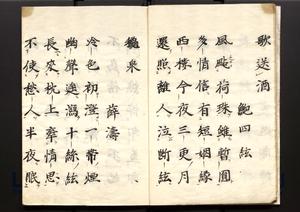 歌送酒
鮑四絃
風颭荷珠難暫圓
多情信有短姻緣
西樓今夜三更月
還照離人泣斷絃
薛濤
冷色初澄一帶煙
幽聲遙瀉十絲絃
長來枕上牽情思
不使愁人半夜眠